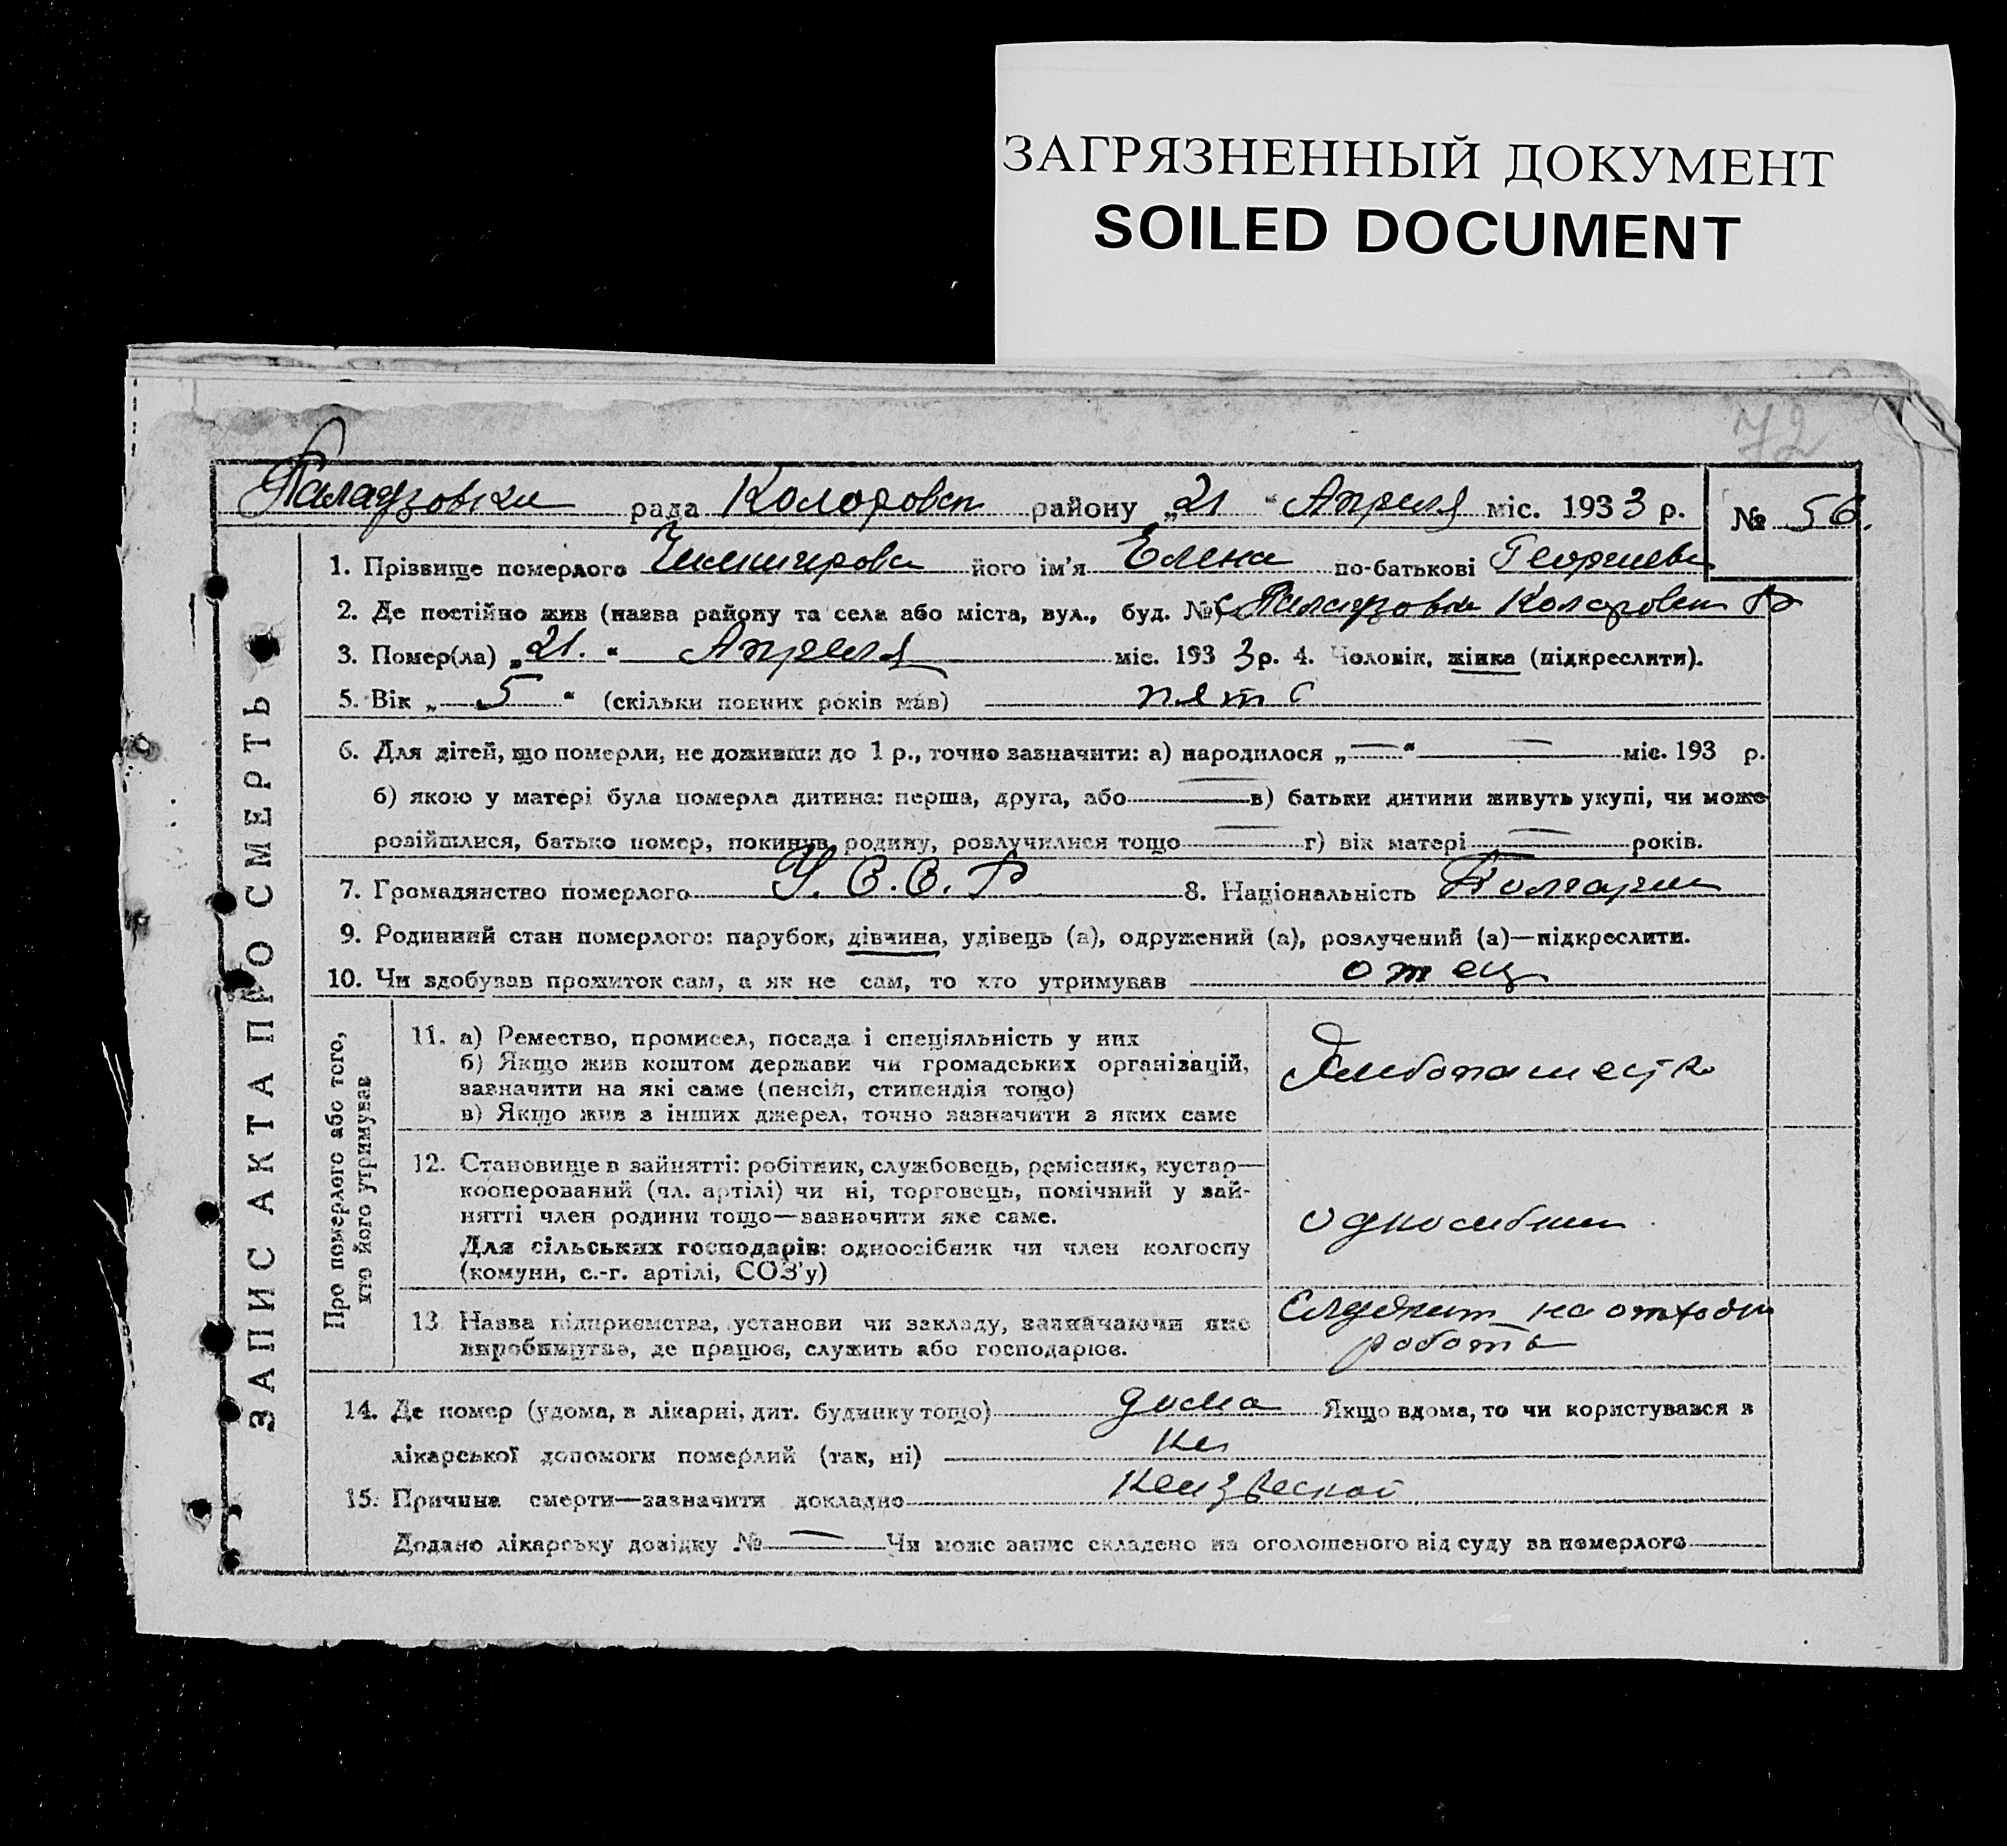 ЗАГРЯЗНЕННЫЙ ДОКУМЕНТ
SOILED DOCUMENT
72
рада Коларовск району „21 “ Апреля міс. 1933 р. № 56.
ЗАПИС АКТА ПРО СМЕРТЬ
1. Прізвище померлого його ім'я Елена по-батькові Георгиевн
2. Де постійно жив (назва району та села або міста, вул., буд. №) Коларовск
3. Помер(ла) „21.“ Апреля міс. 1933 р. 4. Чоловік, жінка (підкреслити).
5. Вік „5“ (скільки повних років мав) пять
6. Для дітей, що померли, не доживши до 1 р., точно зазначити: а) народилося „—“ — міс. 193 р.
б) якою у матері була померла дитина: перша, друга, або — в) батьки дитини живуть укупі, чи може
розійшлися, батько помер, покинув родину, розлучилися тощо — г) вік матері — років.
7. Громадянство померлого У.С.С.Р 8. Національність Болгарин
9. Родинний стан померлого: парубок, дівчина, удівець (а), одружений (а), розлучений (а)—підкреслити.
10. Чи здобував прожиток сам, а як не сам, то хто утримував отец
Про померлого або того,
хто його утримував
11. а) Ремество, промисел, посада і спеціяльність у них
б) Якщо жив коштом держави чи громадських організацій,
зазначити на які саме (пенсія, стипендія тощо)
в) Якщо жив з інших джерел, точно зазначити з яких саме
Хлибопашество
12. Становище в зайнятті: робітник, службовець, ремісник, кустар—
кооперований (чл. артілі) чи ні, торговець, помічний у зай-
нятті член родини тощо—зазначити яке саме.
Для сільських господарів: одноосібник чи член колгоспу
(комуни, с.-г. артілі, СОЗ'у)
13 Назва підприємства, установи чи закладу, зазначаючи яке
виробництво, де працює, служить або господарює.
на отхожи
работа
14. Де помер (удома, в лікарні, дит. будинку тощо) дома Якщо вдома, то чи користувався в
лікарської допомоги померлий (так, ні) не
15. Причина смерти—зазначити докладно
Додано лікарську довідку № — Чи може запис складено на оголошеного від суду за померлого